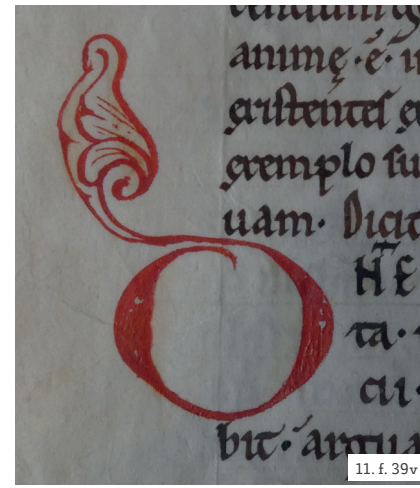 animę · ē · i
existentes e
exemplo su
uam · Dicit
D
HE
ta ·
cu
bit · argua
11. f. 39v